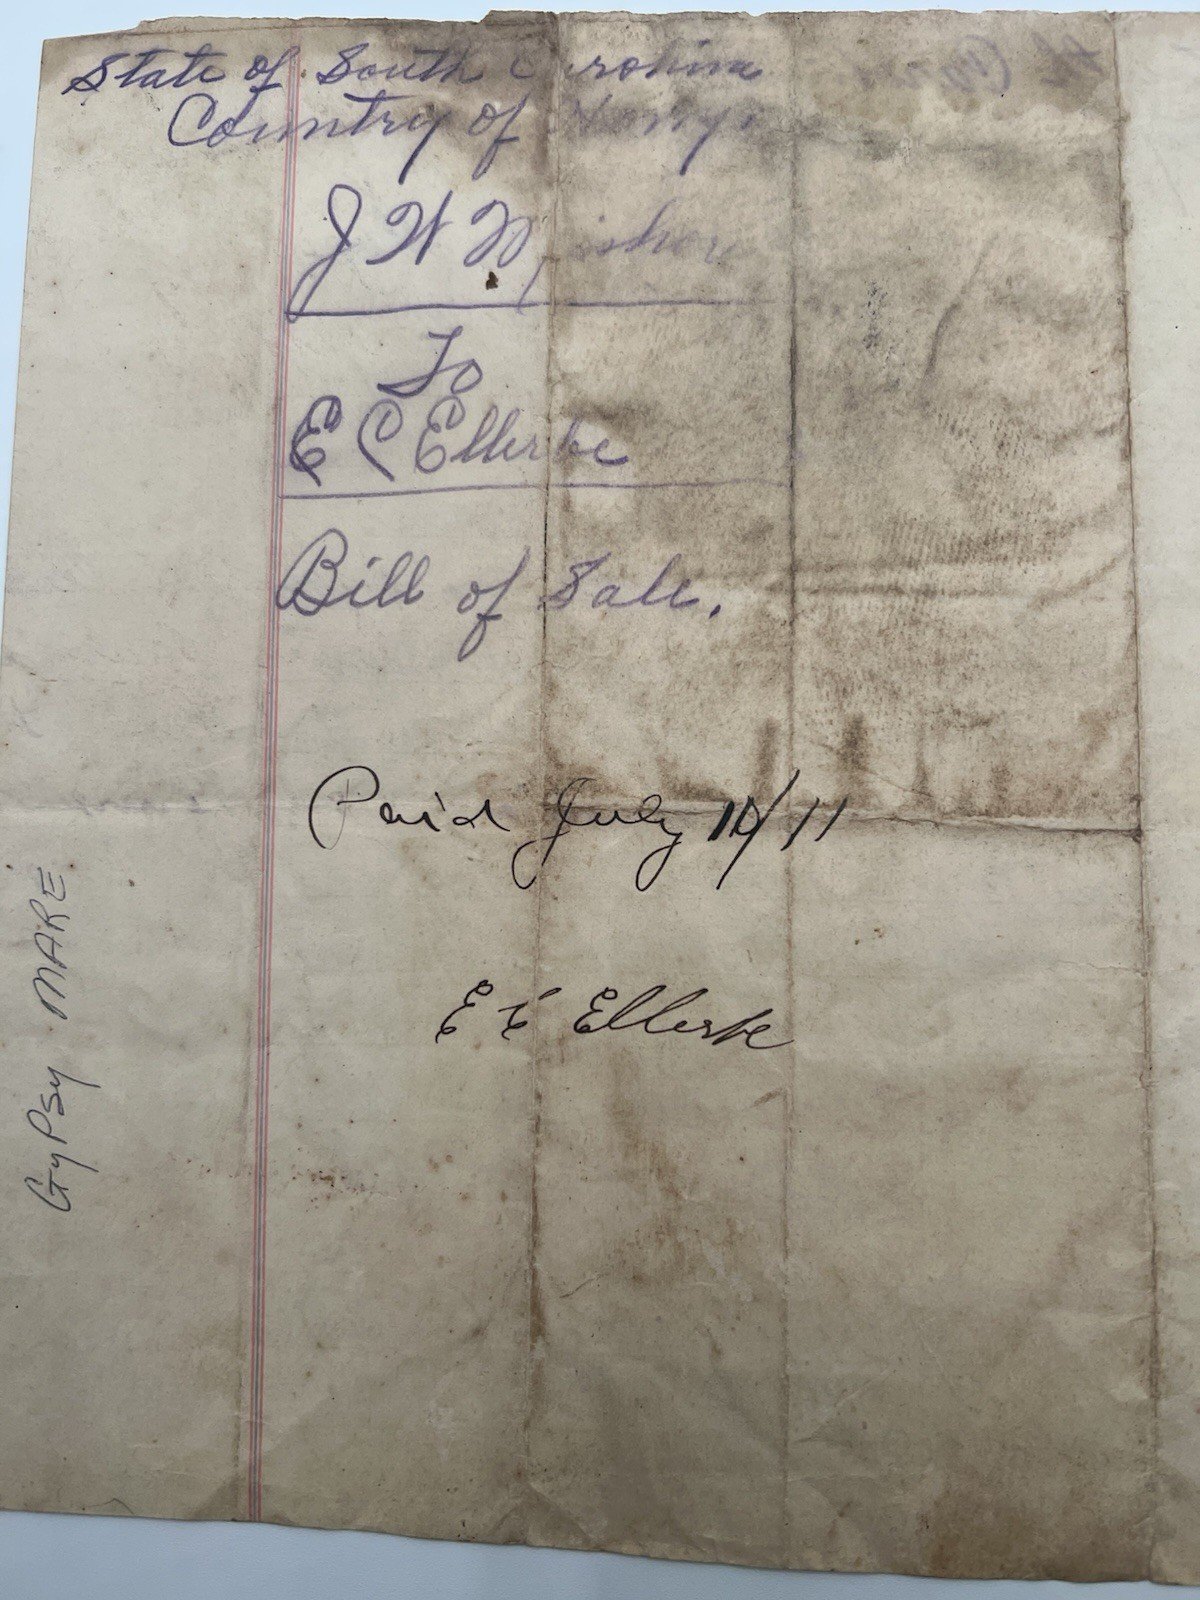 State of South Carolina
Country of Horry
J W
To
E C Ellerbe
Bill of Sale.
Paid July 10/11
E C Ellerbe
GyPsy MARE